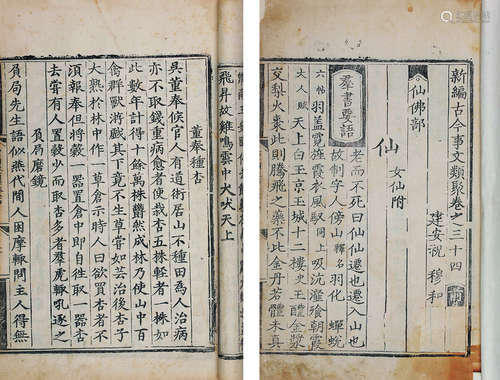 新編古今事文類聚卷之三十四 前
建安祝 穆 和
仙佛部
仙 女仙附
羣書要語 老而不死曰仙仙遷也遷入山也
故制字人傍山釋名羽化 蟬蛻
六帖 羽蓋霓旌霞衣風馭同上 吸沆瀣飡朝霞
大人賦 天上白玉京五城十二樓史 玉醴金漿
交梨火棗此則騰飛之藥不比金丹若體未真
飛昇故雞鳴雲中犬吠天上
董奉種杏
吳董奉候官人有道術居山不種田為人治病
亦不取錢重病愈者使栽杏五株輕者一株如
此數年計得十餘萬株欝然成林乃使山中百
禽群獸游戲其下竟不生草嘗如芸治後杏子
大熟於林中作一草倉示時人曰欲買杏者不
須報奉但將穀一器置倉中即自往取一器杏
去嘗有人置穀少而取杏多者羣虎輙吼逐之
負局磨鏡
負局先生語似燕代間人因摩輙問主人得無